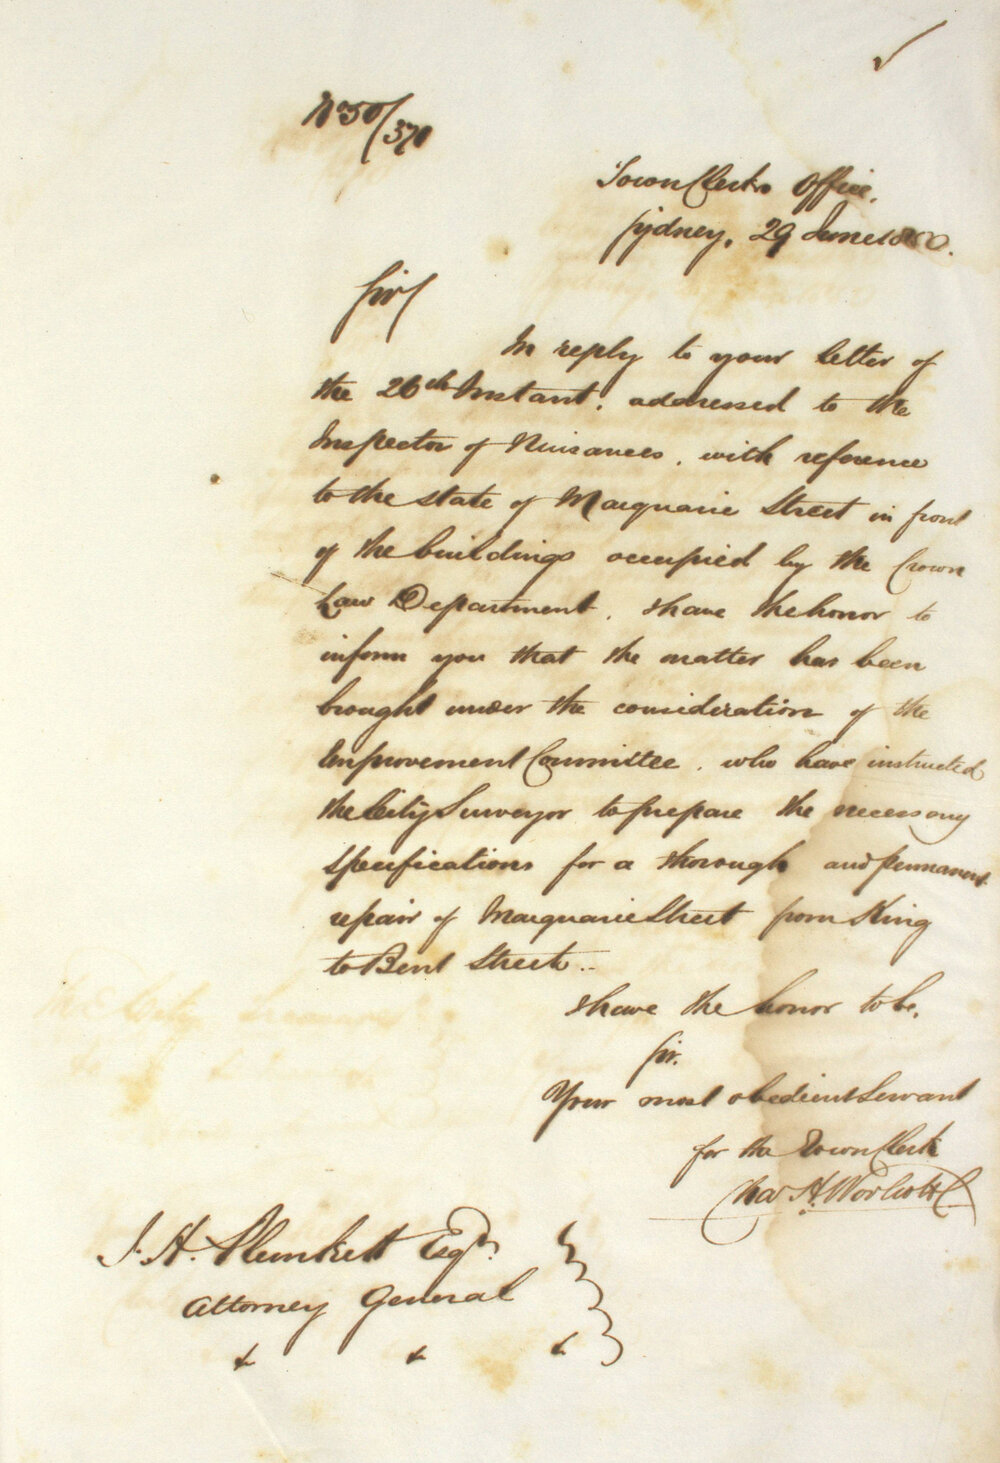 No 50/370
Town Clerks Office,
Sydney, 29 June 1850.
Sir/
In reply to your letter of
the 26th Instant, addressed to the
Inspector of Nuisances, with reference
to the state of Macquarie Street in front
of the buildings occupied by the Crown
Law Department, I have the honor to
inform you that the matter has been
brought under the consideration of the
Improvement Committee, who have instructed
the City Surveyor to prepare the necessary
specifications for a thorough and permanent
repair of Macquarie Street from King
to Bent Street..
I have the honor to be,
Sir.
Your most obedient Servant
for the Town Clerk
Chas H. Woolcott
J. H. Plunkett Esqre.
Attorney General
& & &